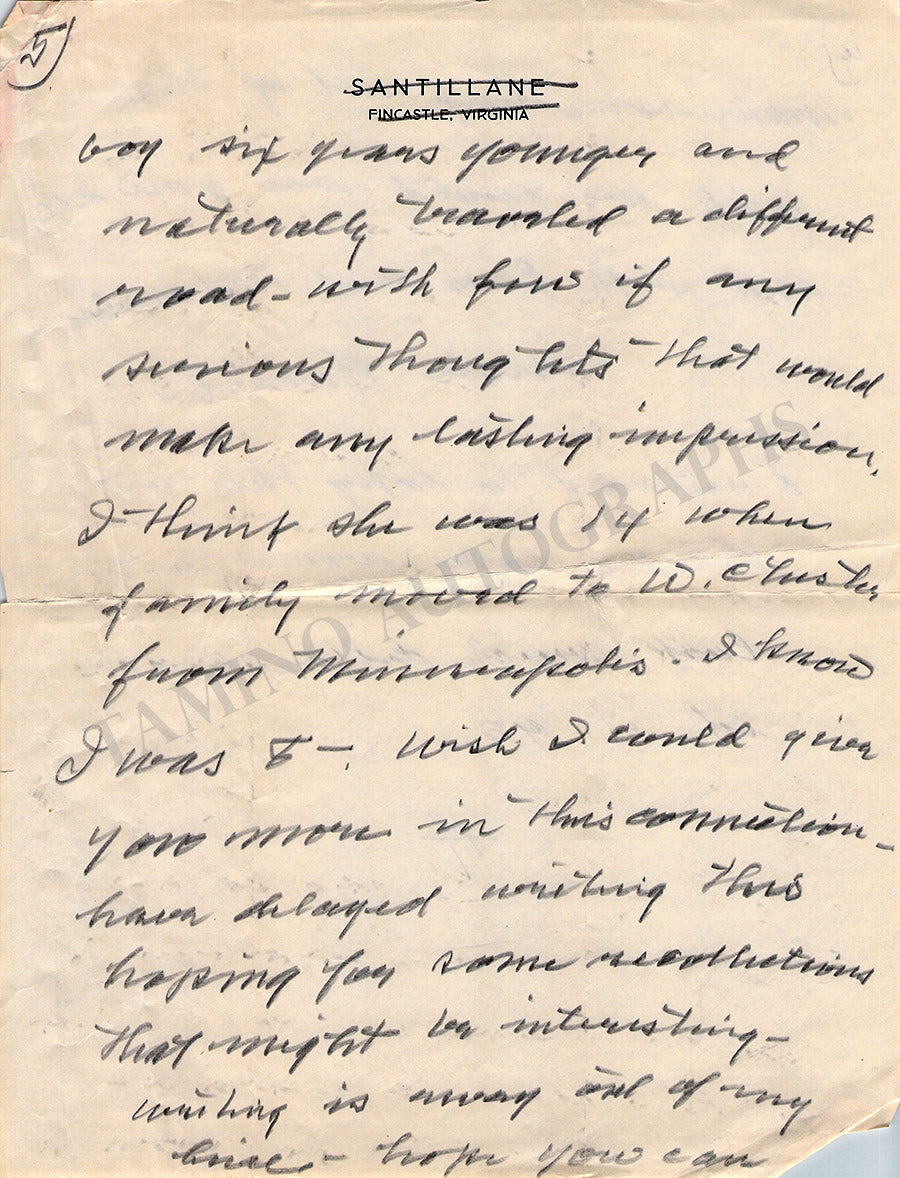 5)
SANTILLANE
FINCASTLE, VIRGINIA
boy six years younger and
naturally traveled a different
road - with few if any
serious thoughts that would
make any lasting impression.
I think she was 14 when
family moved to W. Chester
from Minneapolis. I know
I was 8 -. Wish I could give
you more in this connection -
have delayed writing this
hoping for some recollections
that might be interesting -
writing is away out of my
line - hope you can
TAMINO AUTOGRAPHS